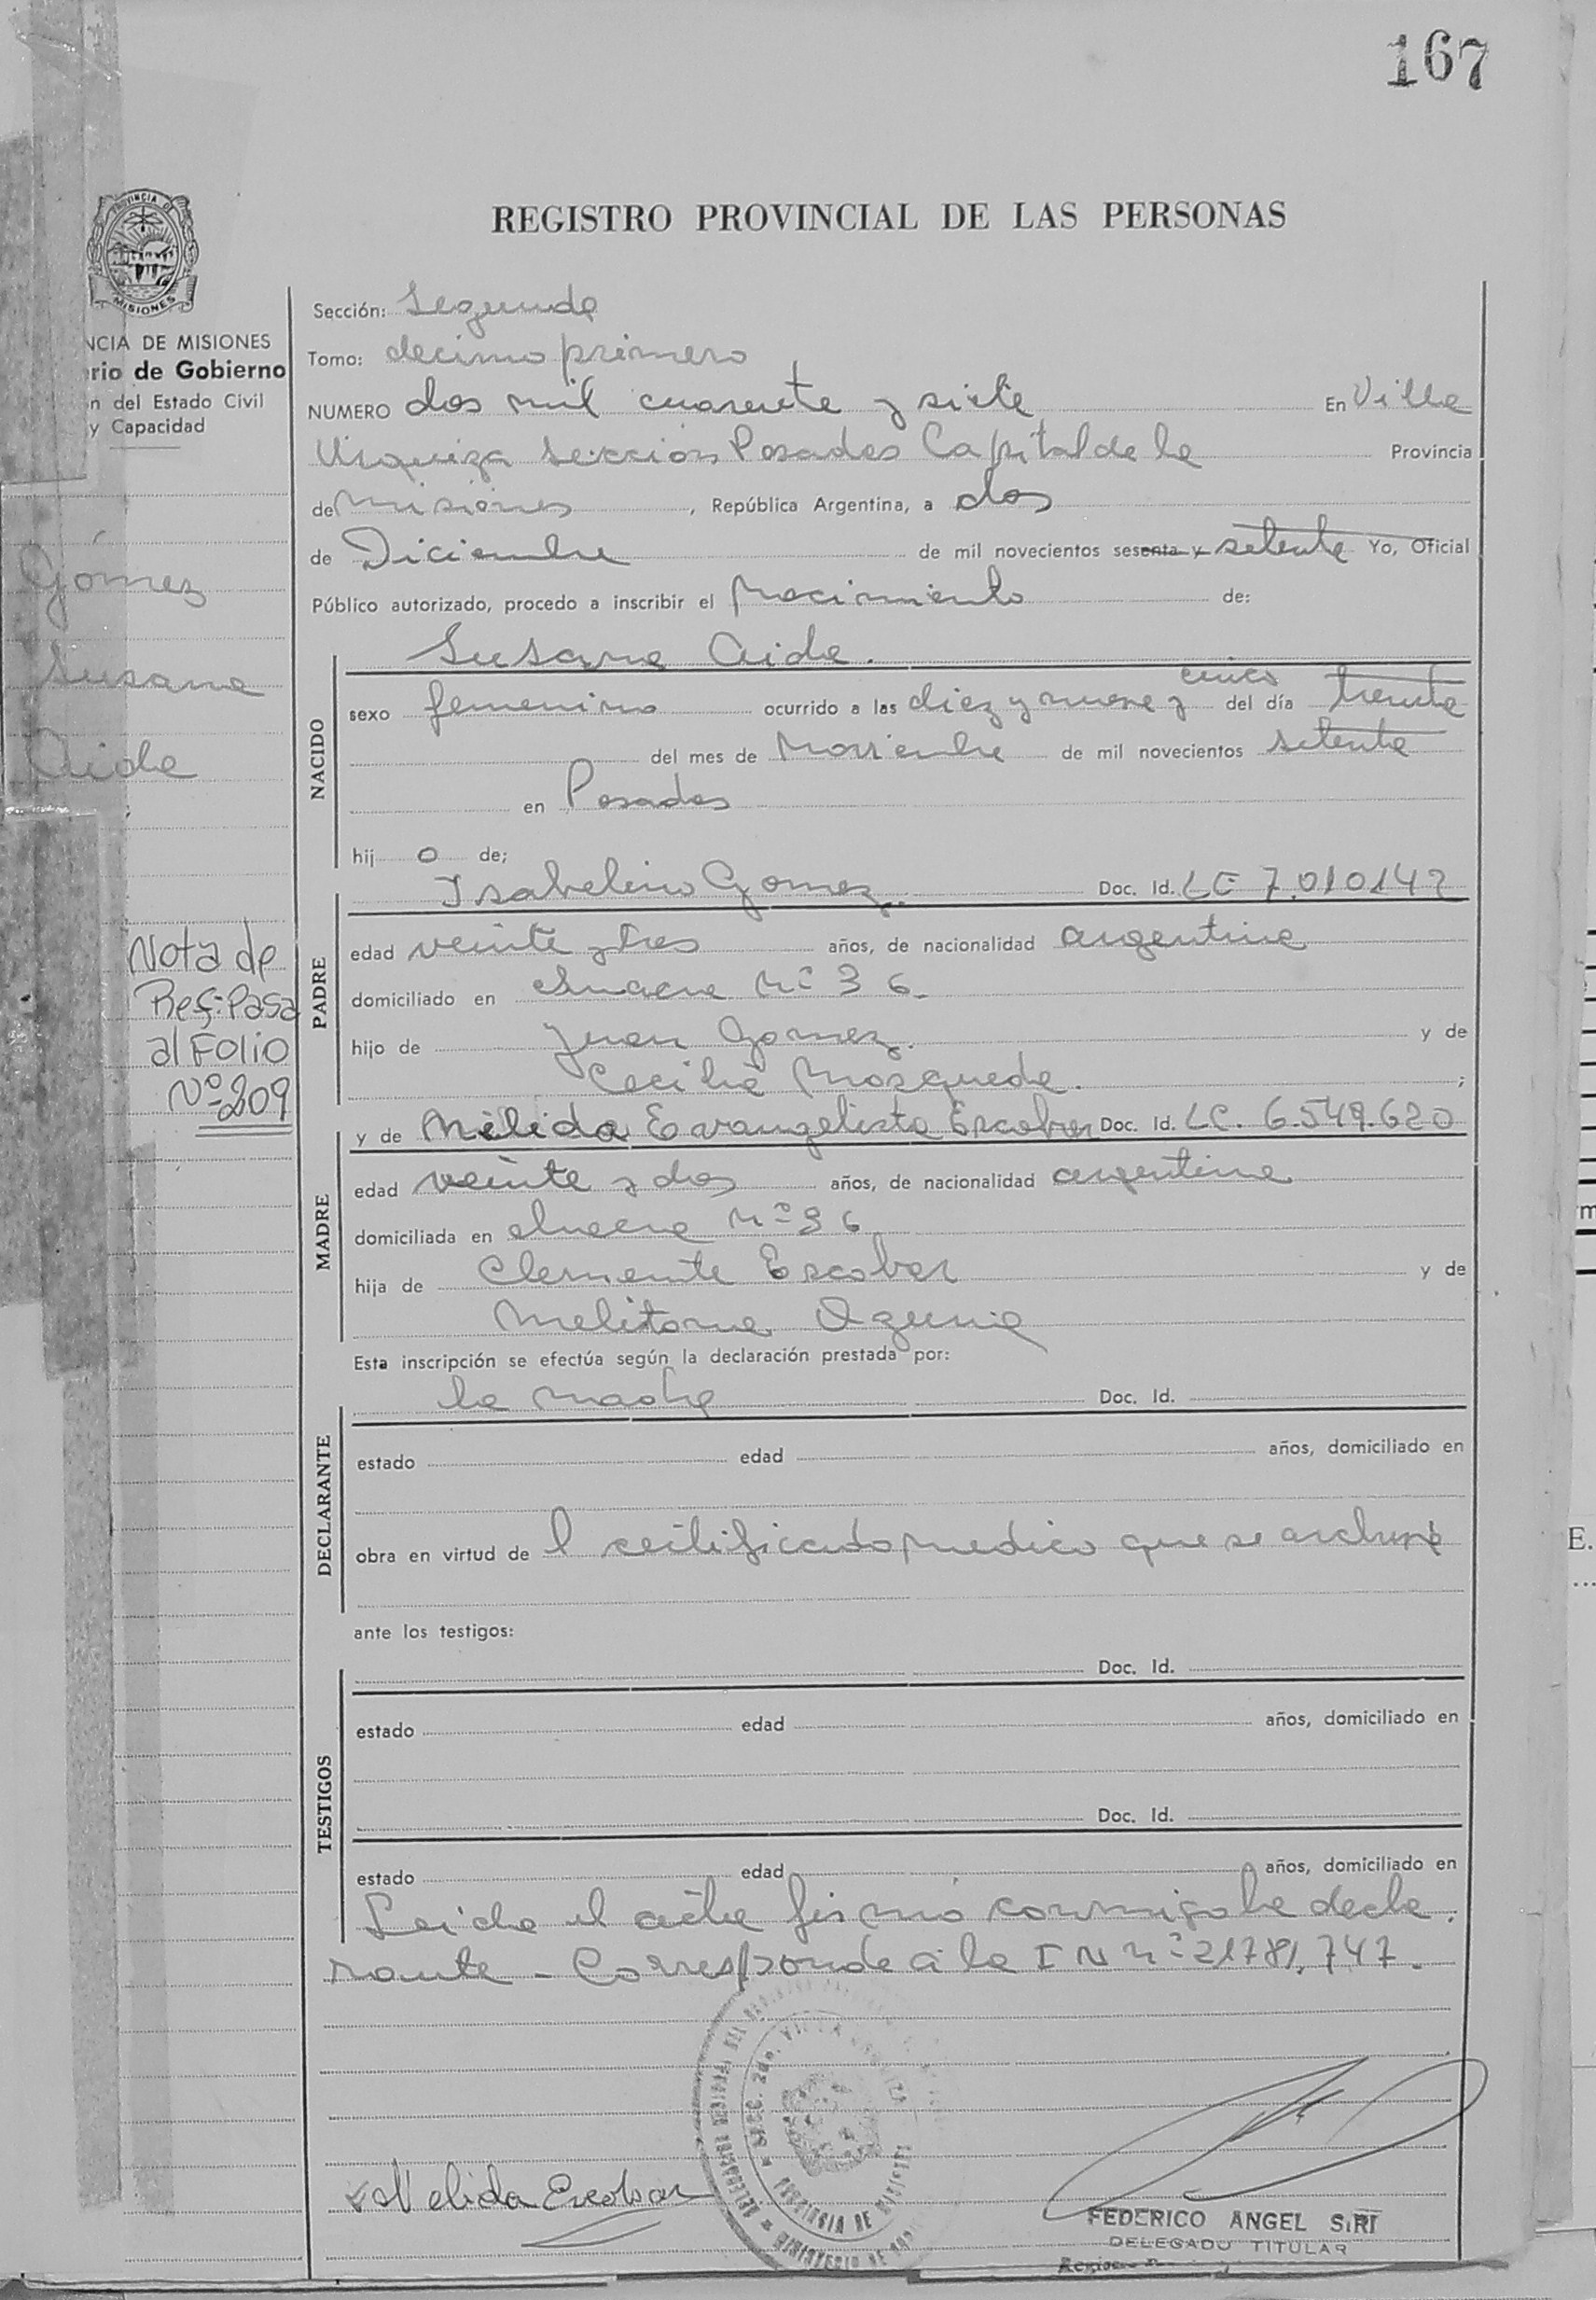 167
REGISTRO PROVINCIAL DE LAS PERSONAS
PROVINCIA DE
MISIONES
NCIA DE MISIONES
rio de Gobierno
n del Estado Civil
y Capacidad
Gómez
Susana
Aide
Nota de
Ref: Pasa
al Folio
Nº 209
Sección: Segunda
Tomo: decimo primero
NUMERO dos mil cuarenta y siete En Villa
Urquiza Sección Posadas Capital de la Provincia
de Misiones, República Argentina, a dos
de Diciembre de mil novecientos sesenta y setenta Yo, Oficial
Público autorizado, procedo a inscribir el Nacimiento de:
Susana Aide.
NACIDO
cinco
sexo femenino ocurrido a las diez y nueve y del día treinta
del mes de Noviembre de mil novecientos setenta
en Posadas
hij o de;
PADRE
Isabelino Gomez. Doc. Id. LE 7.010142
edad veinte y tres años, de nacionalidad argentina
domiciliado en chacra Nº 36.
hijo de Juan Gomez. y de
Cecilia Mosqueda. ;
MADRE
y de Nélida Evangelista Escobar Doc. Id. LC. 6.549.620
edad veinte y dos años, de nacionalidad argentina
domiciliada en chacra Nº 36
hija de Clemente Escobar y de
Melitona
Esta inscripción se efectúa según la declaración prestada por:
DECLARANTE
la madre Doc. Id.
estado edad años, domiciliado en
obra en virtud de l certificado medico que se archiva
ante los testigos:
TESTIGOS
Doc. Id.
estado edad años, domiciliado en
Doc. Id.
estado edad años, domiciliado en
Leida el acta firmó conmigo la decla.
rante - Corresponde a la I N Nº 21781.747.
SECC. 2da. VILLA URQUIZA
PROVINCIA DE MISIONES
Nelida Escobar
FEDERICO ANGEL SIRI
DELEGADO TITULAR